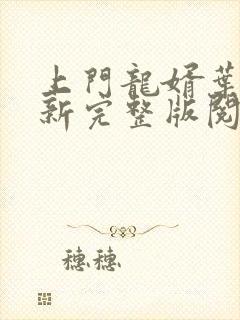 上門龍婿葉
新完整版閱
穗穗